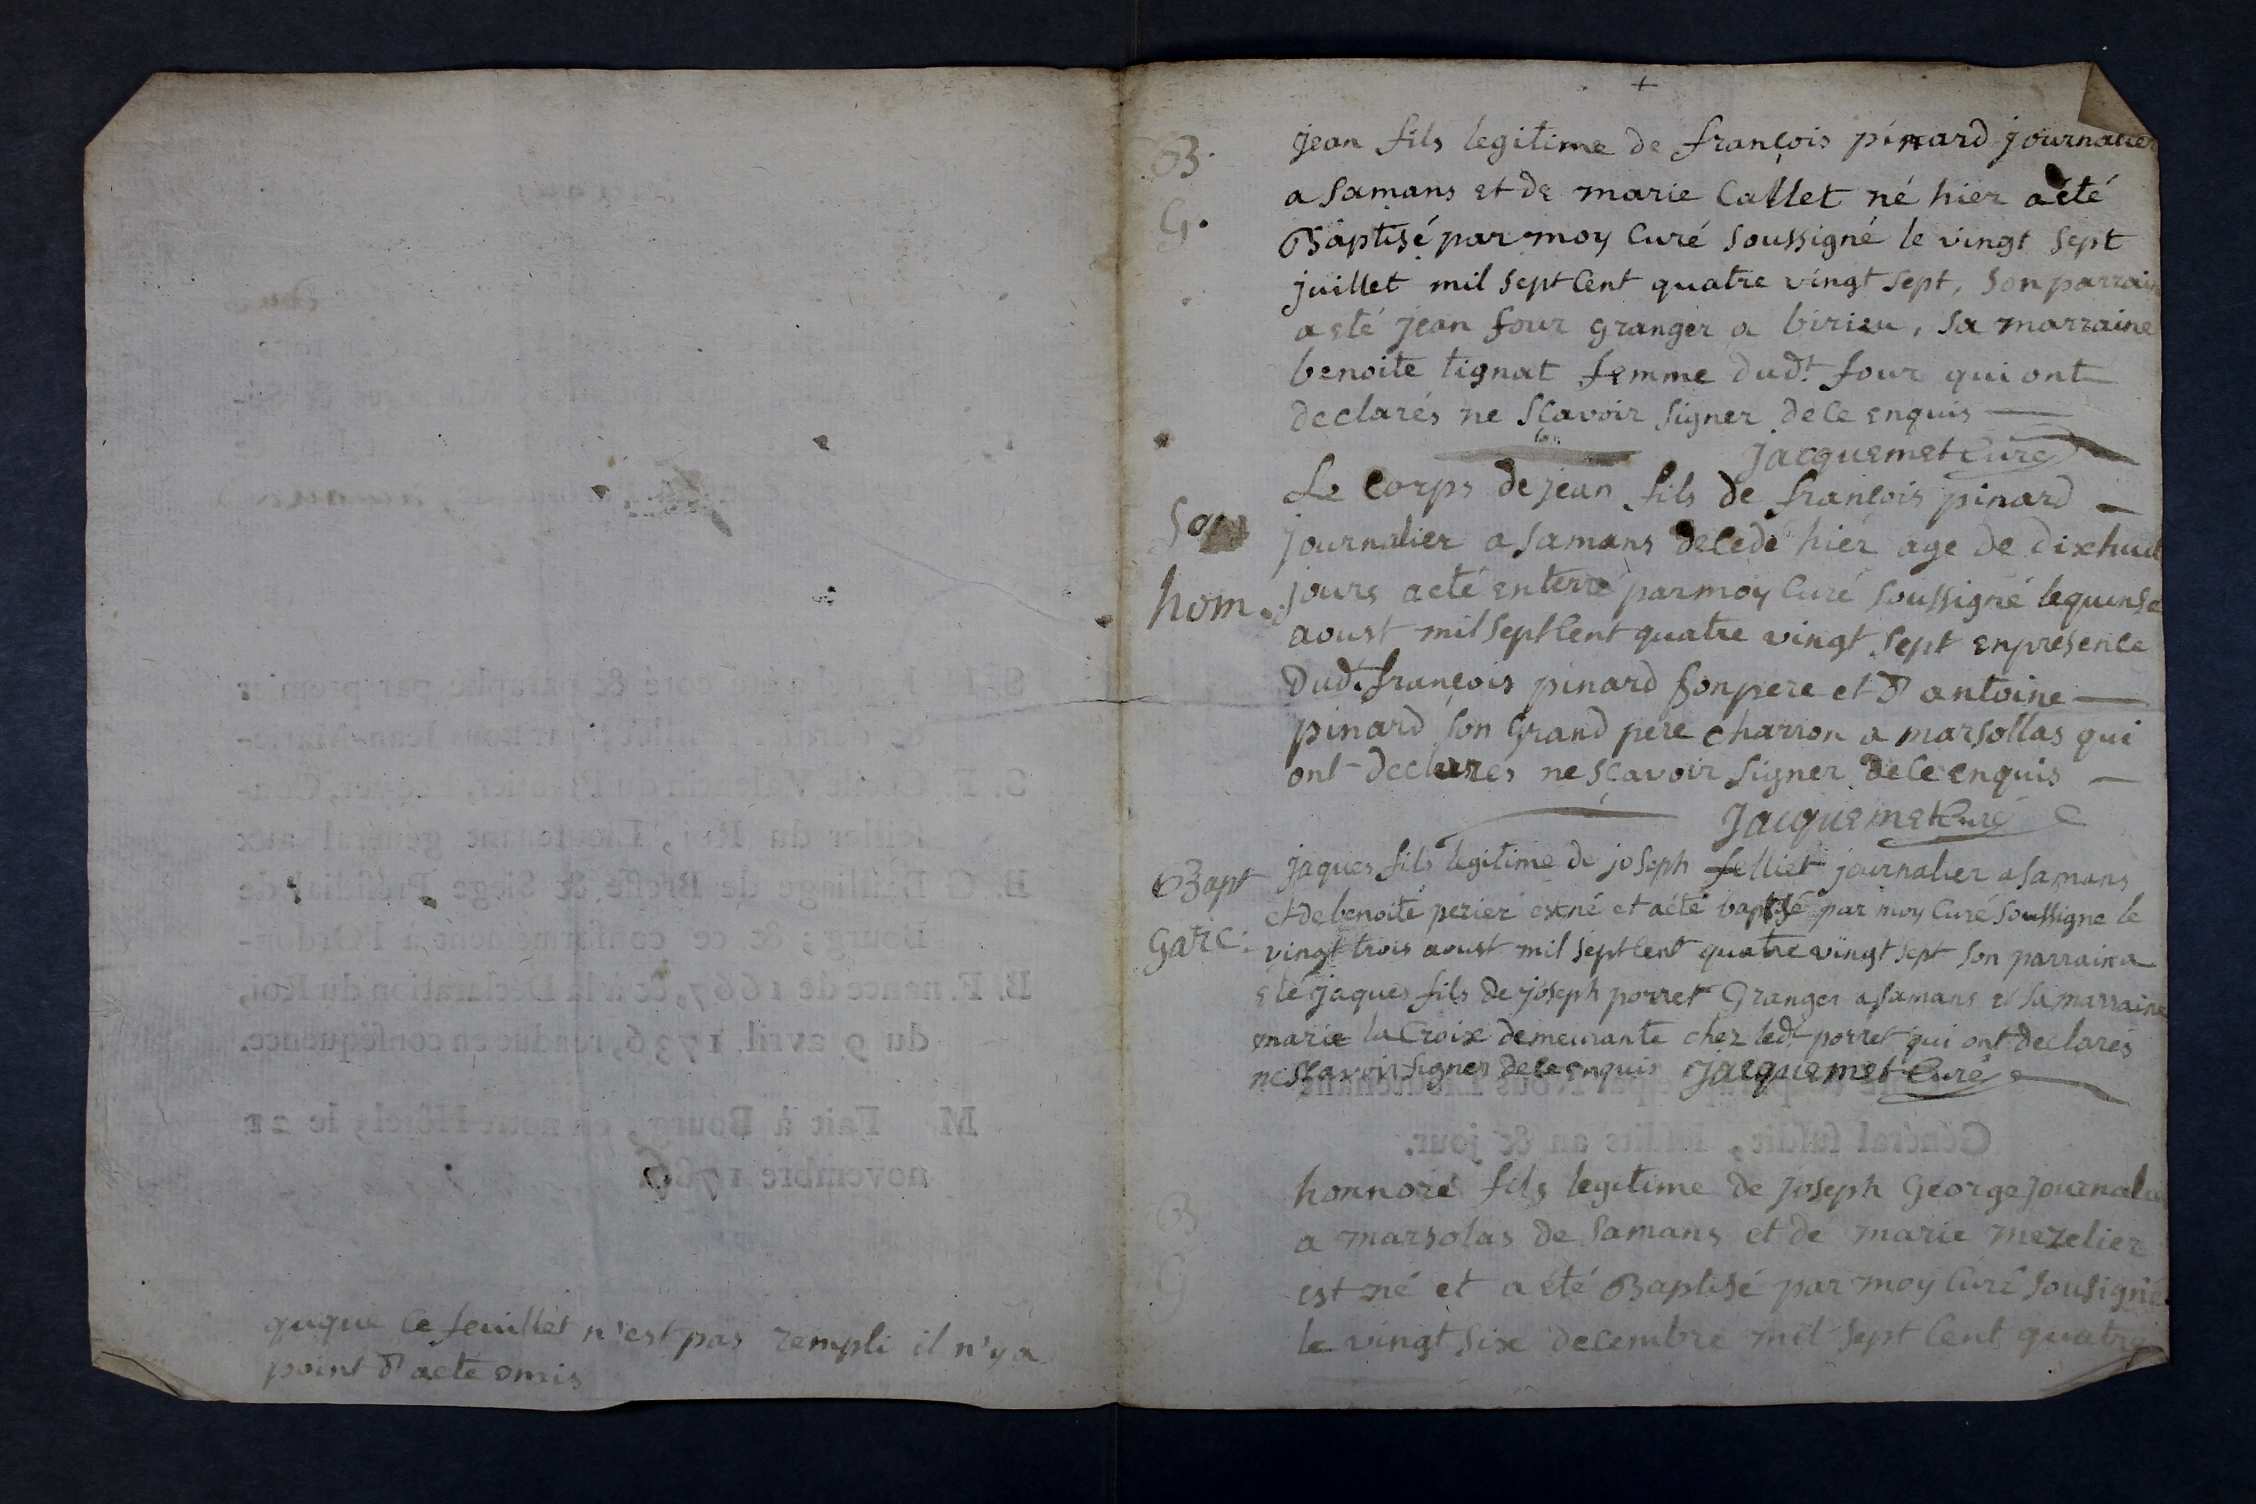 quque ce feuillet n'est pas rempli il n'y a
point d'acte omis
+
B.
G.
jean fils legitime de françois pinard journalier
a Samans et de marie Callet né hier a été
Baptisé par moy Curé soussigné le vingt sept
juillet mil sept Cent quatre vingt sept, son parrain
a eté jean four granger a birieu, sa marraine
benoite tignat femme dud.t four qui ont
declarés ne sçavoir signer de ce enquis
jacquemet Curé
hom.
Le Corps de jean fils de françois pinard
journalier a samans decedé hier age de dixhuit
jours a eté enterré par moy Curé soussigné le quinse
aoust mil sept Cent quatre vingt sept en presence
dud. françois pinard son pere et d'antoine
pinard son Grand pere charron a marsollas qui
ont declarés ne sçavoir signer de ce enquis
jacquemet Curé
Bapt
Garc.
jaques fils legitime de joseph felliet journalier a samans
et de benoite perier est né et a été baptisé par moy Curé soussigné le
vingt trois aoust mil sept Cent quatre vingt sept son parrain a
eté jaques fils de joseph porret Granger a samans et sa marraine
marie la Croix demeurante chez led.t porret qui ont declarés
ne sçavoir signer de ce enquis jacquemet Curé
B
G
honnoré fils legitime de joseph George journalier
a marsolas de Samans et de marie mezelier
est né et a eté Baptisé par moy Curé sousigné
le vingt six decembre mil sept Cent quatre